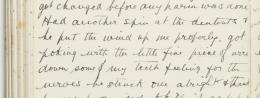 got changed before any harm was done
Had another spin at the dentists &
he put the wind up me properly. got
poking with the little fine piece of wire
down some of my teeth feeling for the
nerves he struck one alright &